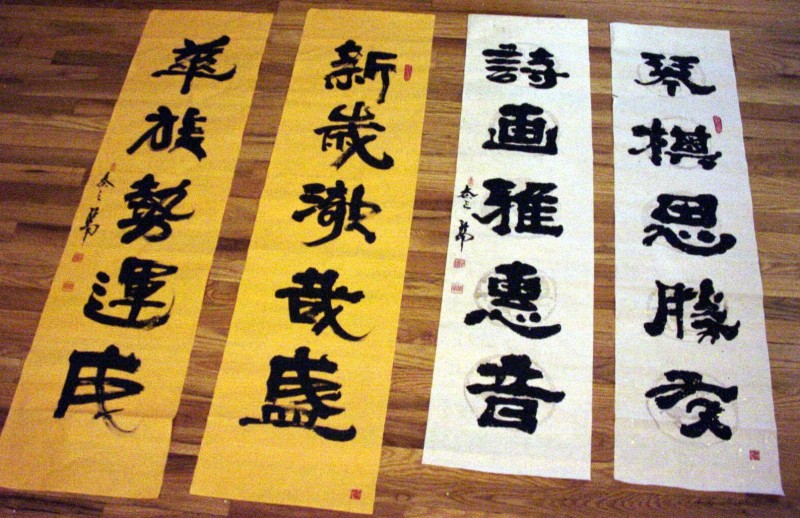 琴棋思勝
詩画雅惠音
新歲哉盛
華族勢運成